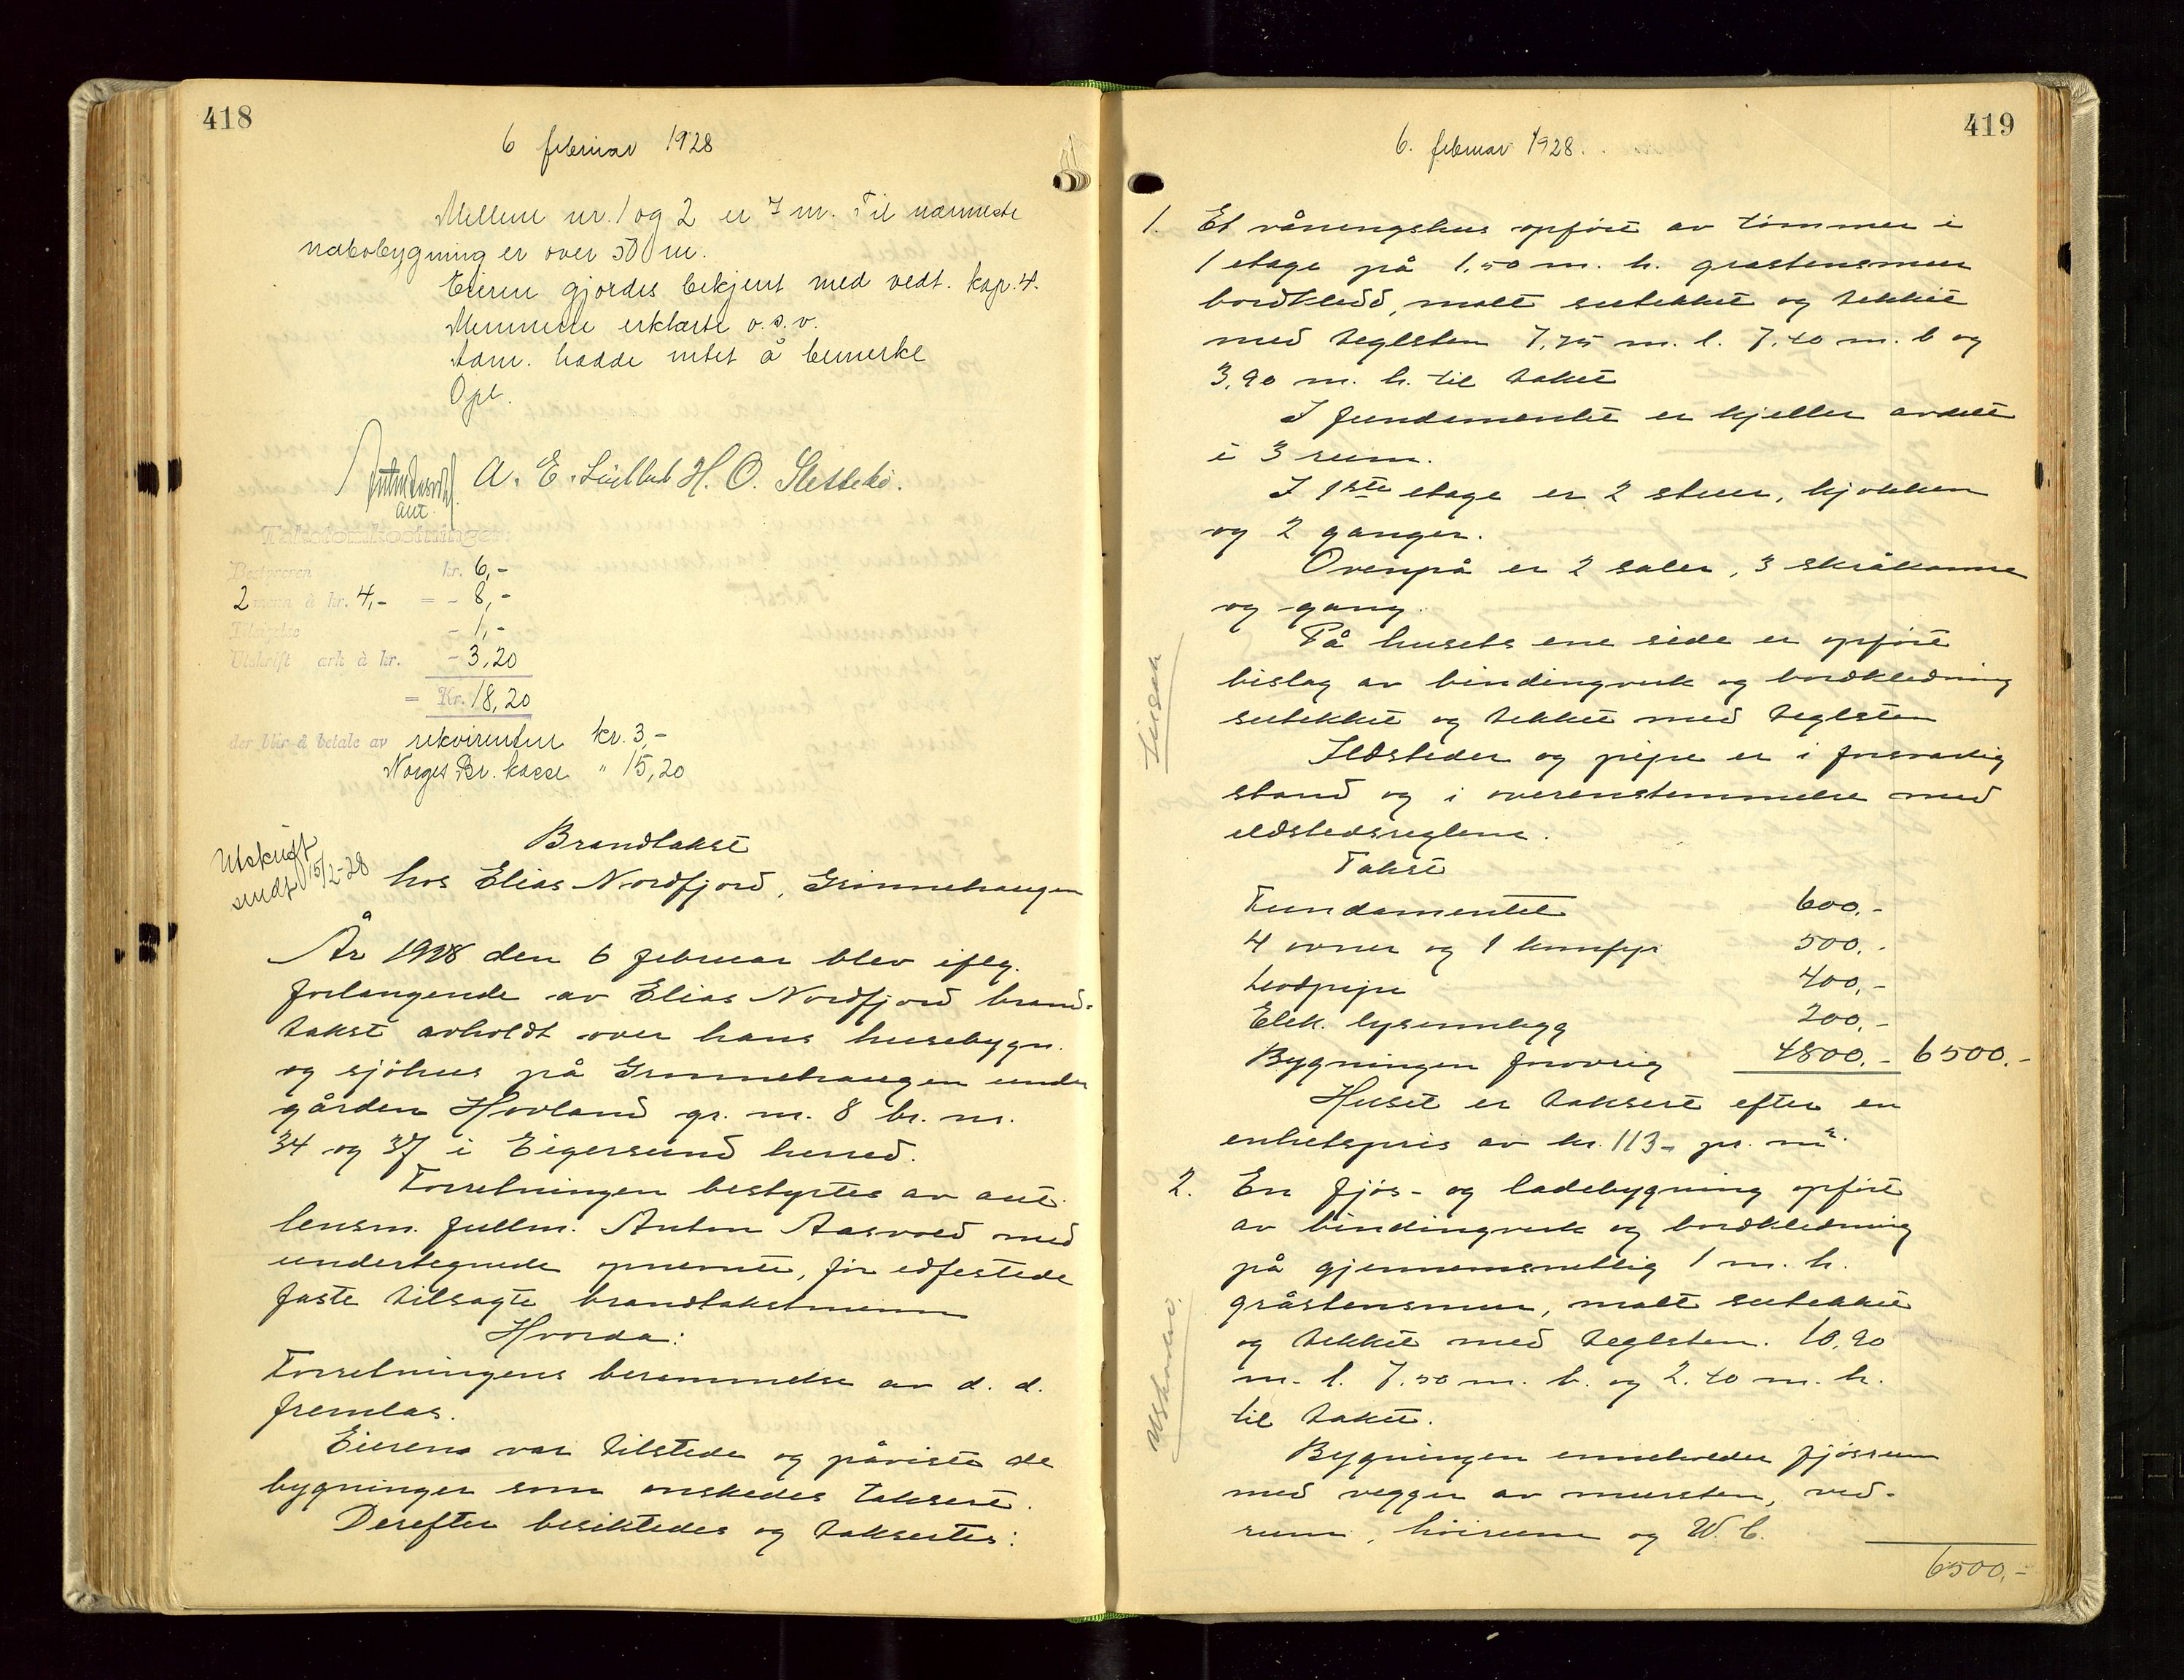 418
6 februar 1928
Mellem nr. 1 og 2 er 7 m. Til nærmeste
nabobygning er over 50 m.
Eieren gjordes bekjent med vedt. kap. 4.
Mennene erklærte o.s.v.
Adm. hadde intet å bemerke
Opl.
A. E. H. O. Slettebø.
aut.
Takstomkostninger:
Bestyreren kr. 6,-
2 menn à kr. 4,- = - 8,-
Tilsigelse - 1,-
Utskrift ark à kr. - 3,20
= Kr. 18,20
der blir å betale av rekvirenten kr. 3,-
Norges Br. kasse " 15,20
Utskrift
sendt 15/2-28
Brandtakst
hos Elias Nordfjord, Grønnehaugen
År 1928 den 6 februar blev iflg.
forlangende av Elias Nordfjord brand-
takst avholdt over hans husebygn.
og sjøhus på Grønnehaugen under
gården Hovland gr. nr. 8 br. nr.
34 og 37 i Eigersund herred.
Forretningen bestyrtes av aut.
lensm. fullm. Anton Aasvold med
undertegnede opnevnte, før edfestede
faste tilsagte brandtakstmenn
Hvorda:
Forretningens berammelse av d. d.
fremlas.
Eieren var tilstede og påviste de
bygninger som ønskedes taksert.
Derefter besiktedes og taksertes:
419
6. februar 1928.
1. Et våningshus opført av tømmer i
1 etage på 1,50 m. h. gråstensmur
bordkledd, malt sutekket og tekket
med teglsten 7,75 m. l. 7,40 m. b og
3,90 m. h. til taket
I fundamentet er kjeller avdelt
i 3 rum.
I 1ste etage er 2 stuer, kjøkken
og 2 ganger.
Ovenpå er 2 saler, 3 skråkamre
og gang.
På husets ene side er opført
bislag av bindingverk og bordkledning
sutekket og tekket med teglsten
Ildsteder og pipe er i forsvarlig
stand og i overenstemmelse med
ildstedsreglene.
Takst
Fundamentet 600,-
4 ovner og 1 komfyr 500,-
Lodpipe 400,-
Elek. lysinnlegg 200,-
Bygningen forøvrig 4800,- 6500,-
Huset er taksert efter en
enhetspris av kr. 113,- pr. m².
2. En fjøs- og ladebygning opført
av bindingverk og bordkledning
på gjennemsnittlig 1 m. h.
gråstensmur, malt sutekket
og tekket med teglsten. 10,90
m. l. 7.50 m. b. og 2.40 m. h.
til taket.
Bygningen inneholder fjøsrum
med vegger av mursten, ved-
rum, høirum og W. C.
6500,-